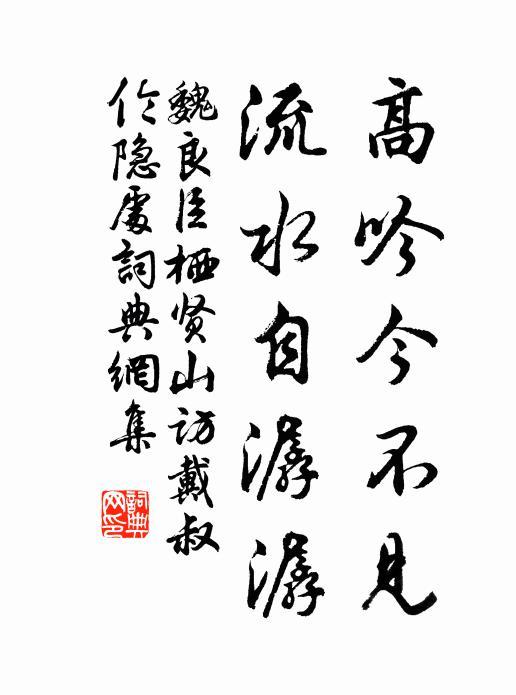 高吟今不見
流水自潺潺
魏良臣栖贤山访戴叔
伦隐處詞典網集
詞典网印